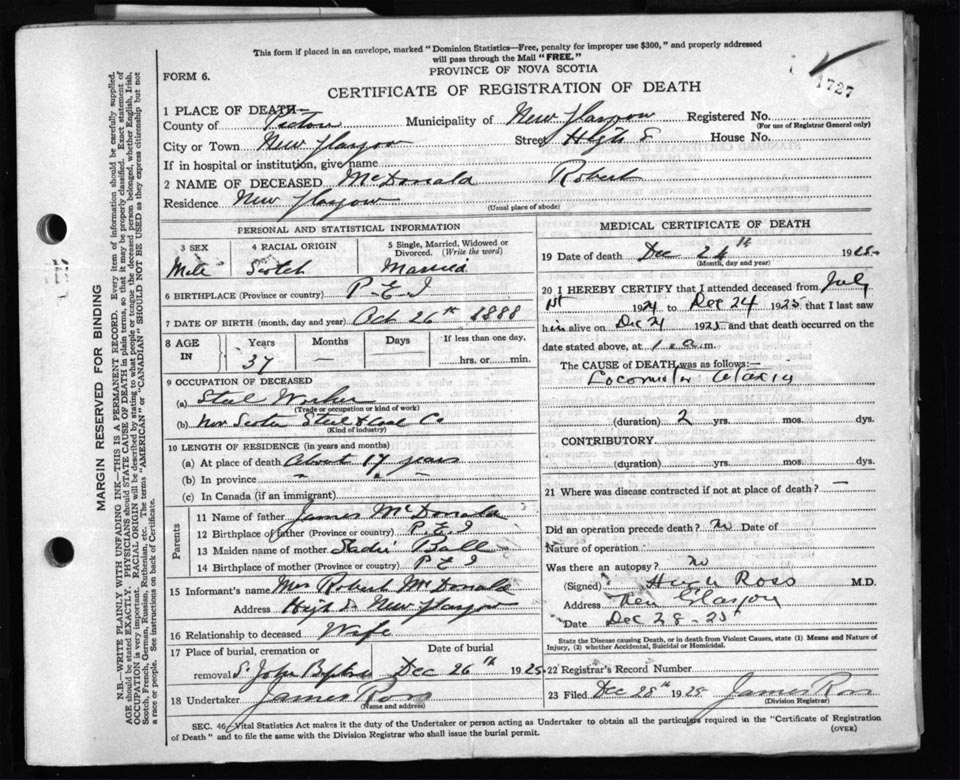 This form if placed in an envelope, marked "Dominion Statistics—Free, penalty for improper use $300," and properly addressed
will pass through the Mail "FREE."
PROVINCE OF NOVA SCOTIA
FORM 6.
CERTIFICATE OF REGISTRATION OF DEATH
1727
1 PLACE OF DEATH—
County of Pictou Municipality of New Glasgow Registered No.
(For use of Registrar General only)
City or Town New Glasgow Street High S House No.
If in hospital or institution, give name
2 NAME OF DECEASED McDonald Robert
Residence New Glasgow
(Usual place of abode)
PERSONAL AND STATISTICAL INFORMATION
3 SEX 4 RACIAL ORIGIN 5 Single, Married, Widowed or Divorced. (Write the word)
Male Scotch Married
6 BIRTHPLACE (Province or country) P-E-I
7 DATE OF BIRTH (month, day and year) Oct 26th 1888
8 AGE IN Years Months Days If less than one day,
37 — hrs. or min.
9 OCCUPATION OF DECEASED
(a) Steel Worker
(Trade or occupation or kind of work)
(b) Nova Scotia Steel & Coal Co
(Kind of industry)
10 LENGTH OF RESIDENCE (in years and months)
(a) At place of death About 17 years
(b) In province " " "
(c) In Canada (if an immigrant)
Parents
11 Name of father James McDonald
12 Birthplace of father (Province or country) P.E.I
13 Maiden name of mother Sadie Ball
14 Birthplace of mother (Province or country) P E I
15 Informant's name Mrs Robert McDonald
Address High S New Glasgow
16 Relationship to deceased Wife
17 Place of burial, cremation or Date of burial
removal St John Baptist Dec 26th 1925
18 Undertaker James Ross
(Name and address)
MEDICAL CERTIFICATE OF DEATH
19 Date of death Dec 24th 1925
(Month, day and year)
20 I HEREBY CERTIFY that I attended deceased from July
1st 1924 to Dec 24 1925 that I last saw
him alive on Dec 21 1925 and that death occurred on the
date stated above, at 1 a.m.
The CAUSE OF DEATH was as follows:—
Locomotor Ataxia
(duration) 2 yrs. mos. dys.
CONTRIBUTORY
(duration) yrs. mos. dys.
21 Where was disease contracted if not at place of death? —
Did an operation precede death? no Date of
Nature of operation
Was there an autopsy? no
(Signed) Hugh Ross M.D.
Address New Glasgow
Date Dec 28-25
State the Disease causing Death, or in death from Violent Causes, state (1) Means and Nature of
Injury, (2) whether Accidental, Suicidal or Homicidal.
22 Registrar's Record Number
23 Filed Dec 28th 1925 James Ross
(Division Registrar)
SEC. 46—Vital Statistics Act makes it the duty of the Undertaker or person acting as Undertaker to obtain all the particulars required in the "Certificate of Registration
of Death" and to file the same with the Division Registrar who shall issue the burial permit.
(OVER)
MARGIN RESERVED FOR BINDING
N.B.—WRITE PLAINLY WITH UNFADING INK—THIS IS A PERMANENT RECORD. Every item of information should be carefully supplied.
AGE should be stated EXACTLY. PHYSICIANS should STATE CAUSE OF DEATH in plain terms, so that it may be properly classified. Exact statement of
OCCUPATION is very important. RACIAL ORIGIN will be described by stating to what people or tongue the deceased person belonged, whether English, Irish,
Scotch, French, German, Russian, Ruthenian, etc. The terms "AMERICAN" or "CANADIAN" SHOULD NOT BE USED as they express citizenship but not
a race or people. See instructions on back of Certificate.